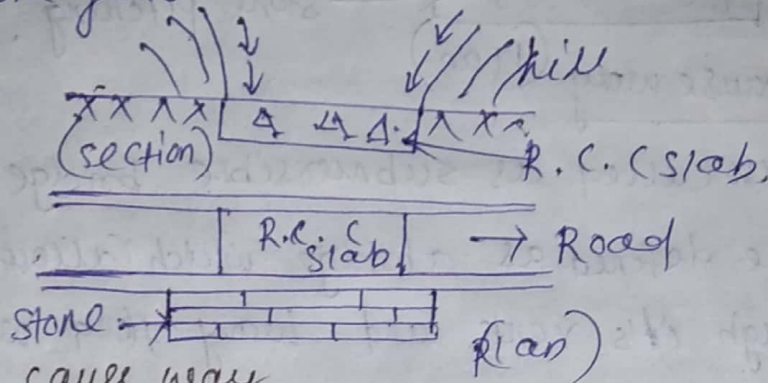 hill
(section)
R.C.C slab.
R.C. C
slab
→ Road
Stone
(Plan)
cause way